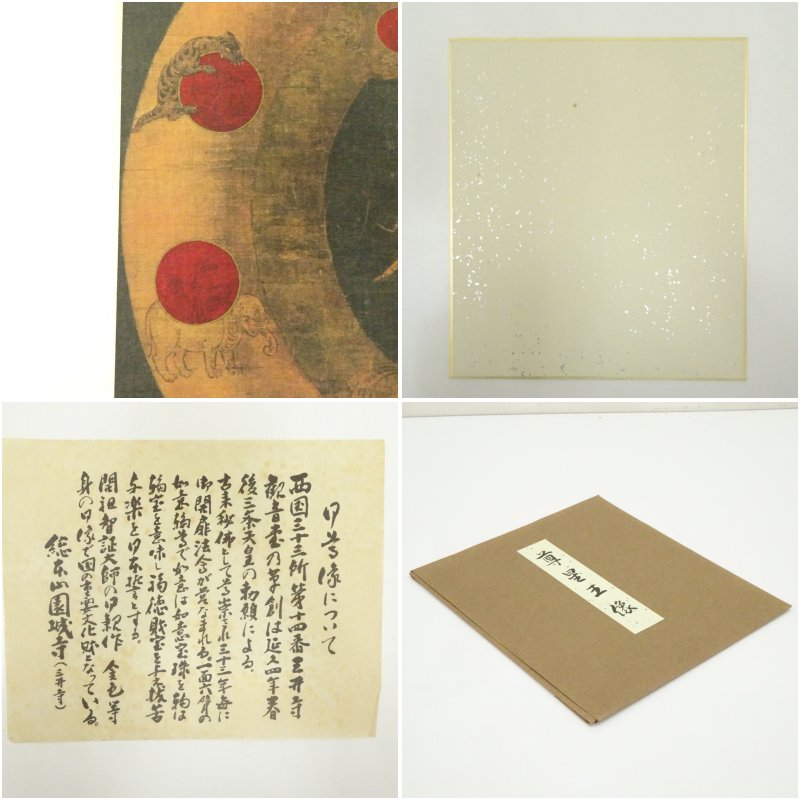 御尊像について
西国三十三所第十四番三井寺
観音堂の草創は延久四年春
後三条天皇の勅願による。
古来秘佛として尊崇され三十三年毎に
御開扉法会が営なまれる。一面六臂の
如意輪尊で如意は如意宝珠を輪は
輪宝を意味し福徳財宝を与え援苦
与楽を御本誓とする。
開祖智証大師の御親作 金色等
身の御像で国の重要文化財となっている。
総本山園城寺(三井寺)
尊星王像